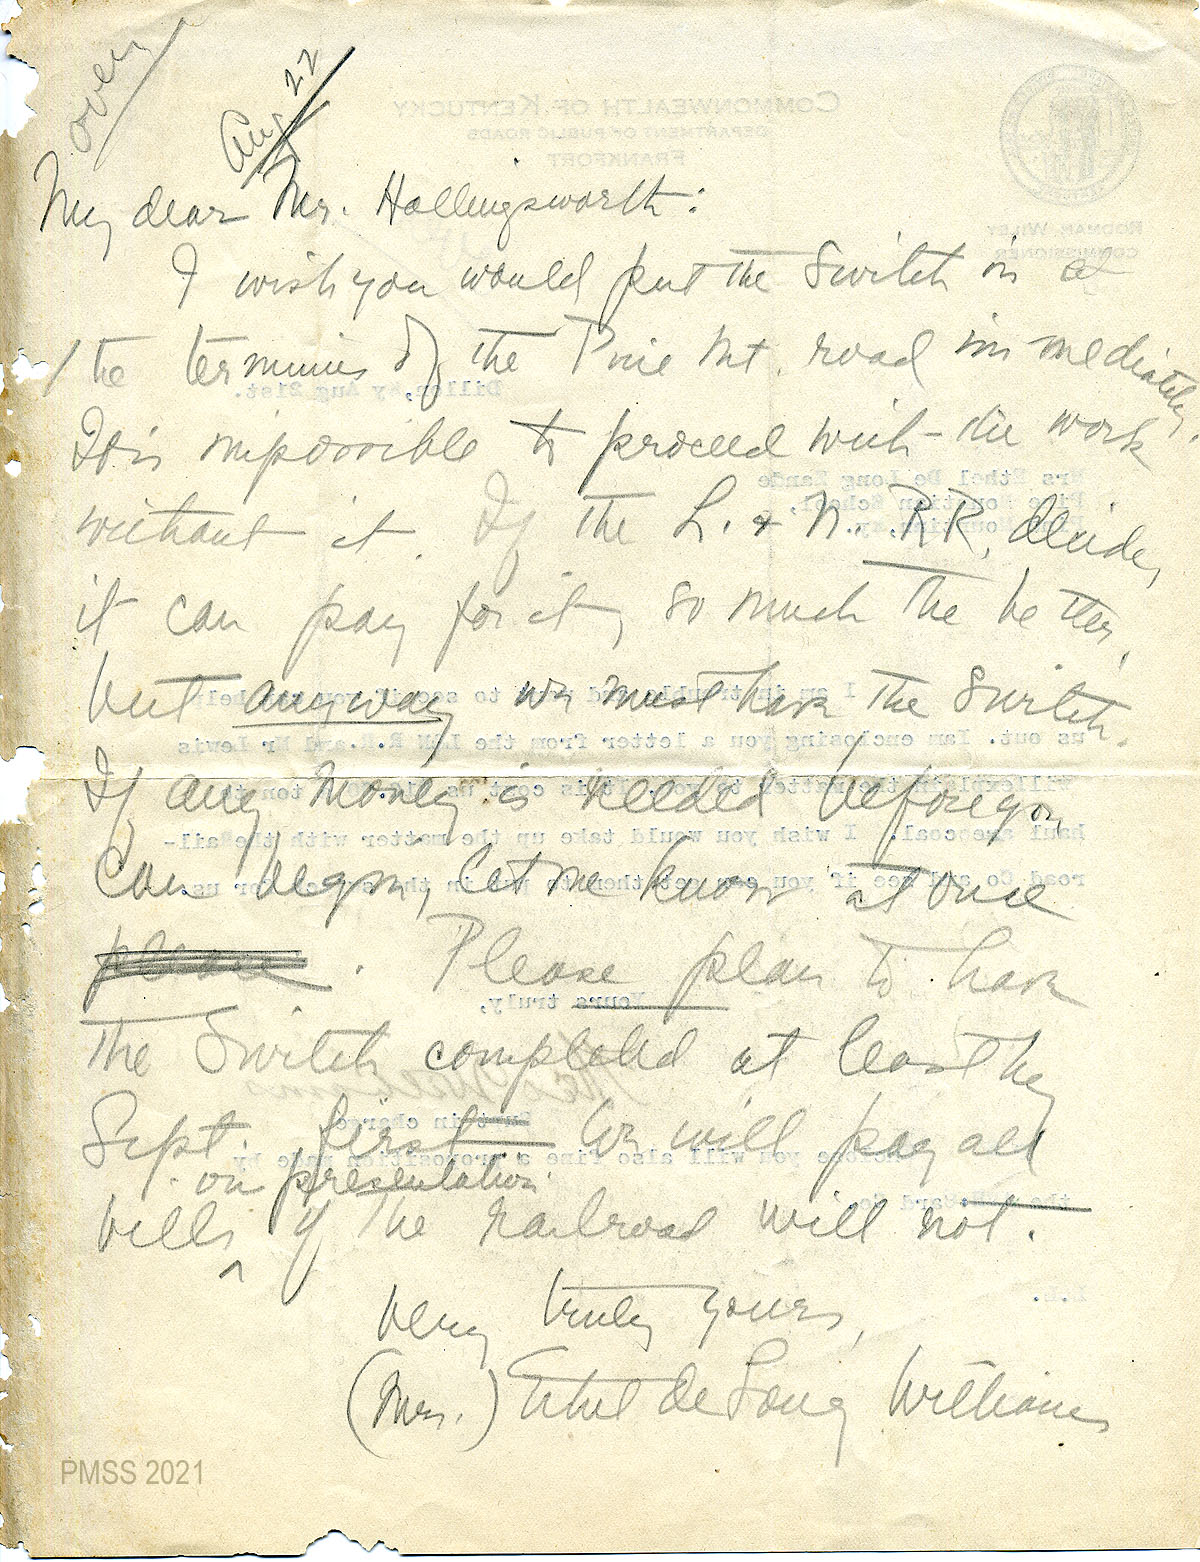 over
Aug 22
My dear Mr. Hollingsworth:
I wish you would put the switch in at
the terminus of the Pine Mt. road immediately.
It is impossible to proceed with the work
without it. If the L. & N. RR. decides
it can pay for it, so much the better,
but anyway we must have the switch.
If any money is needed before you
can begin, let me know at once
please. Please plan to have
the switch completed at least by
Sept. first. We will pay all
on presentation
bills ^ if the railroad will not.
Very truly yours,
(Mrs.) Ethel de Long Williams
PMSS 2021